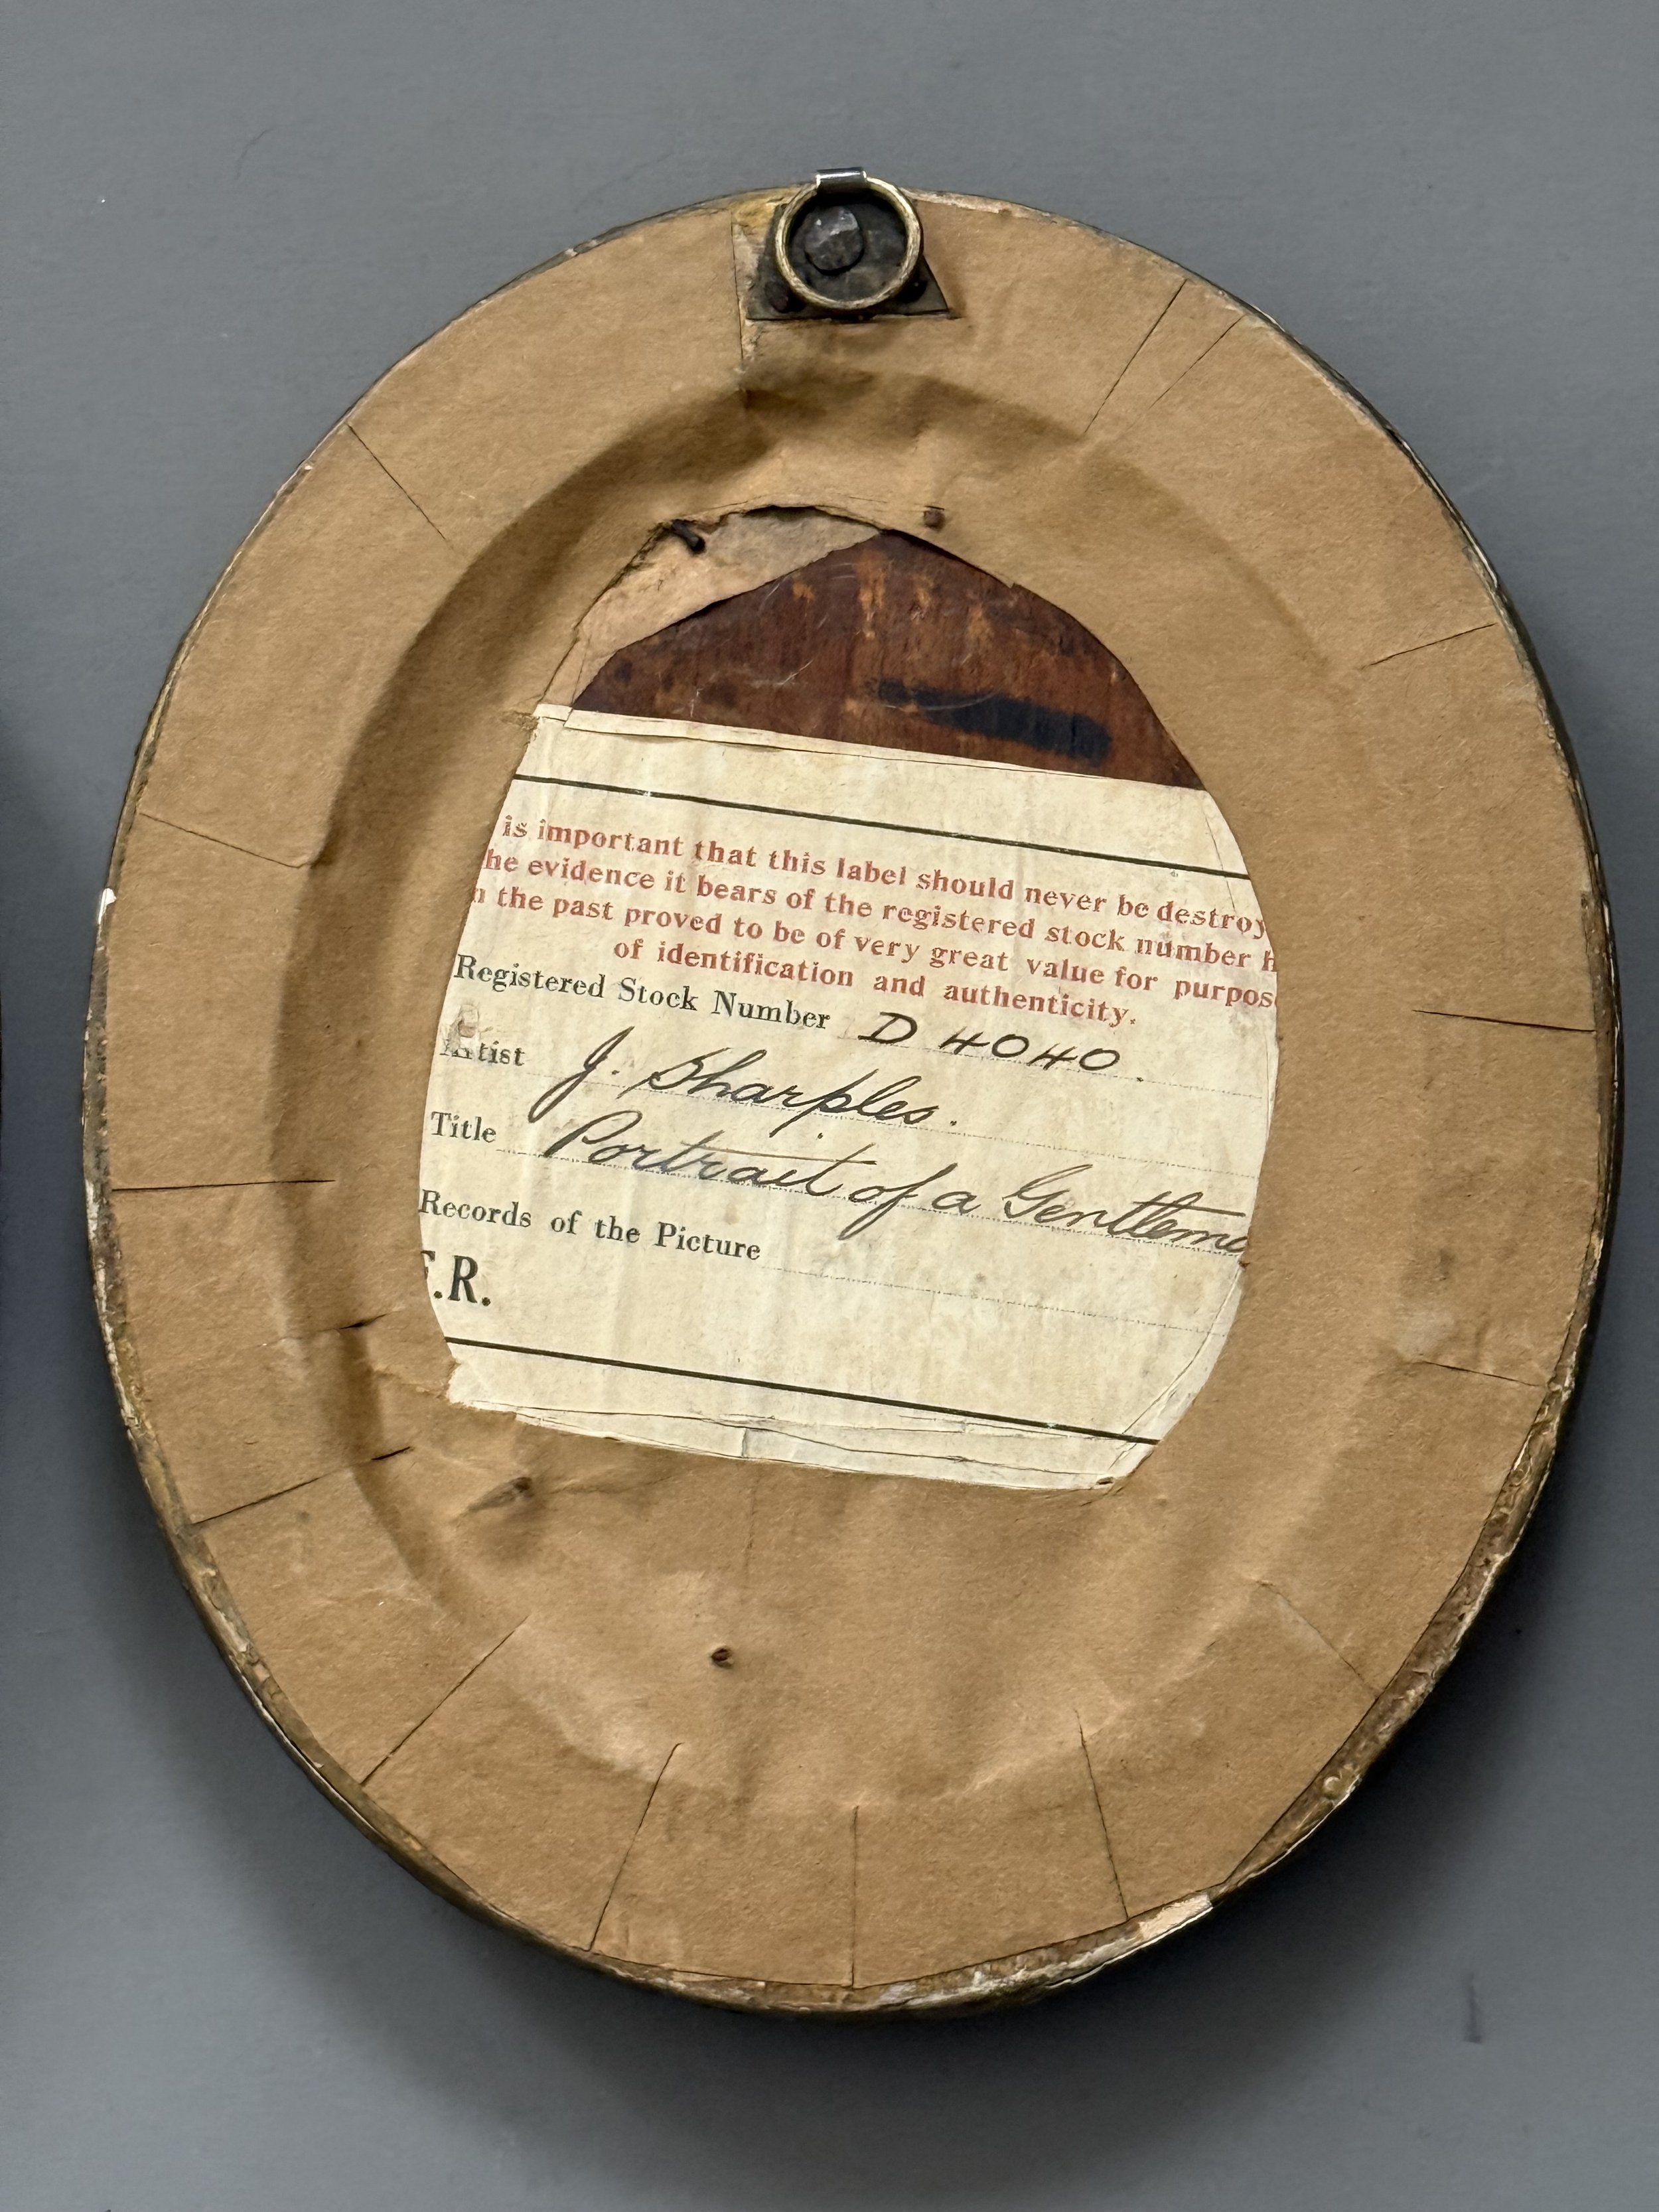 is important that this label should never be destroy
he evidence it bears of the registered stock number h
n the past proved to be of very great value for purpos
of identification and authenticity.
Registered Stock Number D 4040.
Artist J. Sharples.
Title Portrait of a Gentlema
Records of the Picture
.R.